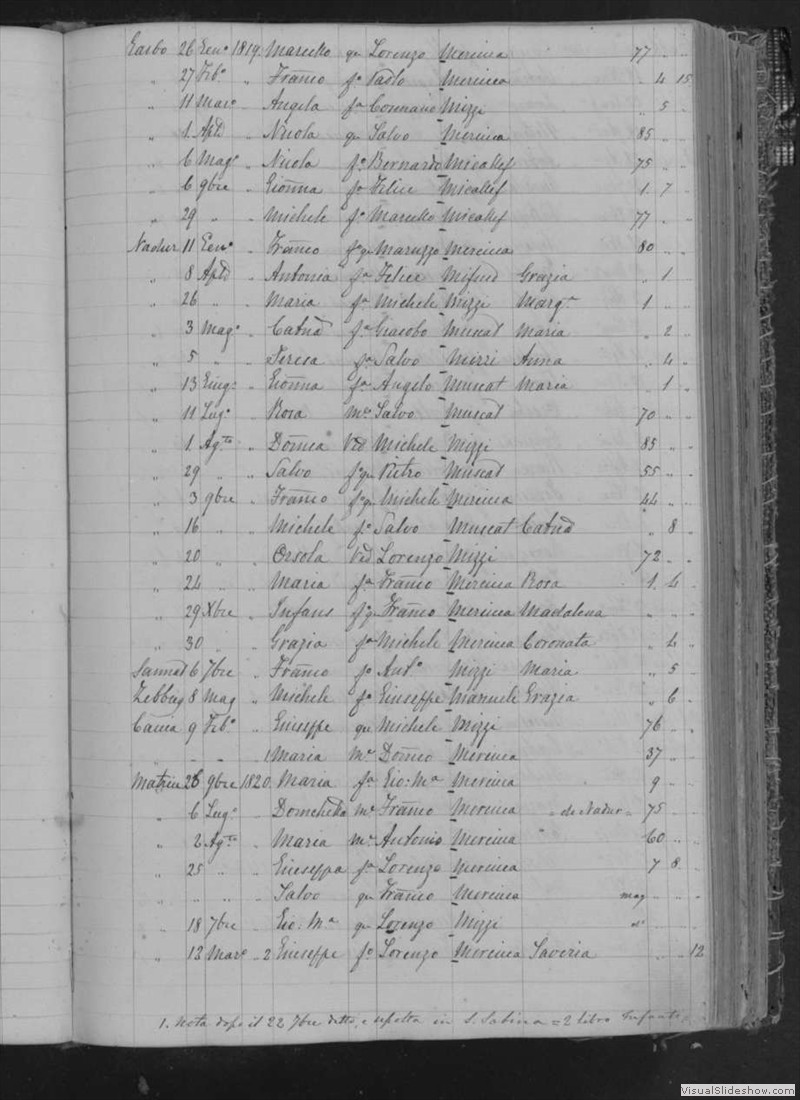 Garbo 26 Genº 1819. Marcello qm Lorenzo Mercieca 77 " "
" 27 Febº " Franco fº Paolo Mercieca " 4 15
" 11 Marº " Angela fª Mizzi " 5 "
" 1 Aple " Nicola qm Salvo Mercieca 85 " "
" 6 Magº " Nicola fº Bernardo Micallef 75 " "
" 6 9bre " Gionna fª Felice Micallef 1 7 "
" 29 " " Michele fº Marcello Micallef 77 " "
Nadur 11 Genº " Franco fº qm Maruzzo Mercieca 80 " "
" 8 Aple " Antonia fª Felice Mifsud Grazia " 1 "
" 26 " " Maria fª Michele Mizzi Margª 1 " "
" 3 Magº " Catna fª Giacobo Muscat Maria " 2 "
" 5 " Teresa fª Salvo Mizzi Anna " 4 "
" 13 Giugº " Gionna fª Angelo Muscat Maria " 1 "
" 11 Lugº " Rosa me Salvo Muscat 70 " "
" 1 Agto " Domca Ved Michele Mizzi 85 " "
" 29 " " Salvo fº qm Pietro Muscat 55 " "
" 3 9bre " Franco fº qm Michele Mercieca 44 " "
" 16 " " Michele fº Salvo Muscat Catna " 8 "
" 20 " " Orsola Ved Lorenzo Mizzi 72 " "
" 24 " " Maria fª Franco Mercieca Rosa 1 4 "
" 29 Xbre " Infans Franco Mercieca Madalena " " "
" 30 " Grazia fª Michele Mercieca Coronata " 4 "
Sannat 6 7bre " Franco fº Antº Mizzi Maria " 5 "
Zebbug 8 Mag " Michele fº Giuseppe Manuele Grazia " 6 "
Caccia 9 Febº " Giuseppe qm Michele Mizzi 76 " "
" - - 1 Maria me Domco Mercieca 37 " "
Matrice 26 9bre 1820. Maria fª Gio: Mª Mercieca 9 "
" 6 Lugº " Domenica me Franco Mercieca = de Nadur = 75 "
" 2 Agto " Maria me Antonio Mercieca 60 " "
" 25 " " Giuseppa fª Lorenzo Mercieca 7 8 "
" " " " Salvo qm Franco Mercieca mag " "
" 18 7bre " Gio: Mª qm Lorenzo Mizzi do " "
" 12 Marº " 2 Giuseppe fº Lorenzo Mercieca Saveria " " 12
1. Nota dopo il 22 7bre detto, e sepolta in S. Sabina = 2 libro Infanti
VisualSlideshow.com